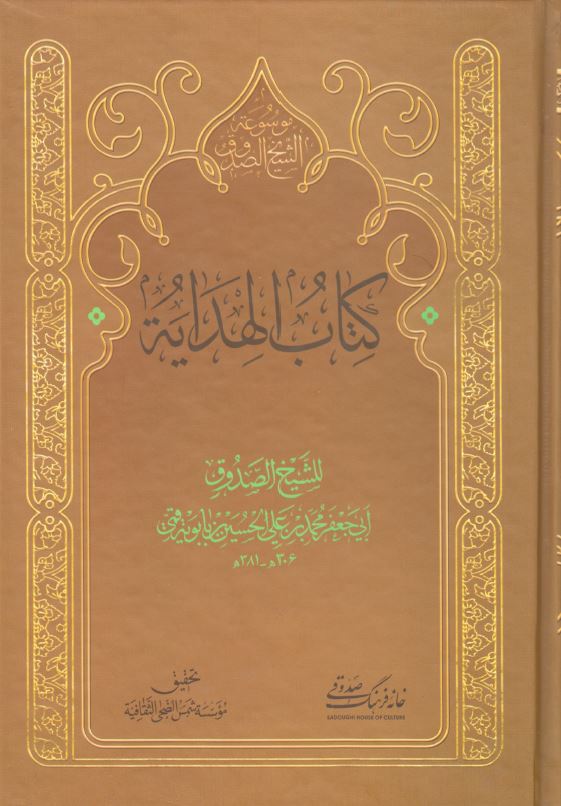 موسوعة
الشيخ الصدوق
كِتَابُ الهِدَايَة
للشَّيْخِ الصَّدُوقِ
أَبي جَعْفَر مُحَمَّد بْن عَلي الحُسَيْن بْن بَابويْه قمّي
٣٠۶هـ - ٣٨١هـ
تحقيق
مؤسّسة شمس الضّحى الثّقافيّة
خانه فرهنگ صدوقی
SADOUGHI HOUSE OF CULTURE